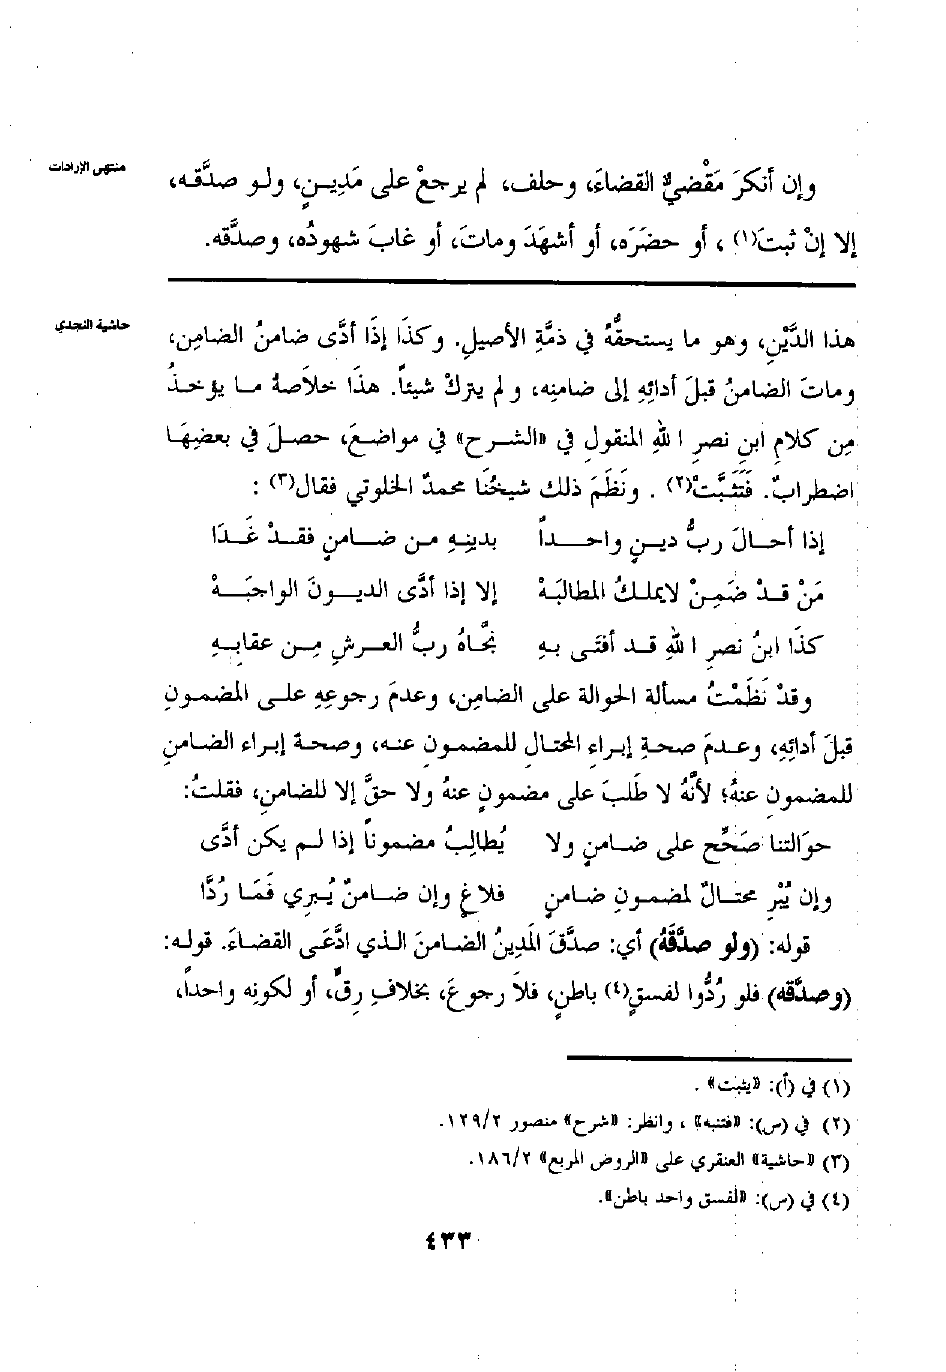 منتهى الإرادات
وإن أنكرَ مَقْضيٌّ القضاءَ، وحلف، لم يرجعْ على مَدِيـنٍ، ولـو صدَّقـه،
إلا إنْ ثبتَ(١) ، أو حضَرَه، أو أشهَدَ وماتَ، أو غابَ شهودُه، وصدَّقه.
حاشية النجدي
هذا الدَّيْنِ، وهو ما يستحقُّهُ في ذمَّةِ الأصيلِ. وكذَا إذَا أدَّى ضامنُ الضامنِ،
وماتَ الضامنُ قبلَ أدائِهِ إلى ضامنِه، ولم يتركْ شيئاً. هذَا خلاَصةُ مـا يؤخـذُ
مِن كلامِ ابنِ نصرِ ا للهِ المنقولِ في «الشرح» في مواضـعَ، حصـلَ في بعضِهَـا
اضطرابٌ. فَتَثبَّتْ(٢) . ونَظَمَ ذلك شيخُنَا محمدٌ الخلوتي فقال(٣) :
إذا أحـالَ ربُّ ديـنٍ واحـداً بدينِهِ مـن ضـامنٍ فقـدْ غَـدَا
مَنْ قـدْ ضَمِنْ لايملـكُ المطالبَهْ إلا إذا أدَّى الديـونَ الواجبَـهْ
كذَا ابنُ نصرِ ا للهِ قـد أفتَـى بـهِ نجَّاهُ ربُّ العـرشِ مِـن عقابِـهِ
وقدْ نَظَمْتُ مسألة الحوالة على الضامنِ، وعدمَ رجوعِهِ علـى المضمـونِ
قبلَ أدائِهِ، وعـدمَ صحةِ إبراءِ المحتالِ للمضمونِ عنـه، وصحـة إبـراء الضامنِ
للمضمونِ عنهُ؛ لأنَّهُ لا طَلَبَ على مضمونٍ عنهُ ولا حقَّ إلا للضامنِ، فقلتُ:
حوَالتنا صَحِّح على ضـامنٍ ولا يُطالِبُ مضموناً إذا لـم يكن أدَّى
وإن يُبْرِ محتـالٌ لمضمـونِ ضامنٍ فلاغٍ وإن ضـامنٌ يُـبرِي فَمَـا رُدَّا
قوله: (ولو صدَّقَهُ) أي: صدَّقَ المَدِينُ الضامنَ الـذي ادَّعَـى القضـاءَ. قولـه:
(وصدَّقه) فلو رُدُّوا لفسقٍ(٤) باطنٍ، فلاَ رجوعَ، بخلافِ رِقٍّ، أو لكونِه واحداً،
(١) في (أ): «يثبت» .
(٢) في (س): «فتنبه» ، وانظر: «شرح» منصور ١٢٩/٢.
(٣) «حاشية» العنقري على «الروض المربع» ١٨٦/٢.
(٤) في (س): «لفسق واحد باطن».
٤٣٣